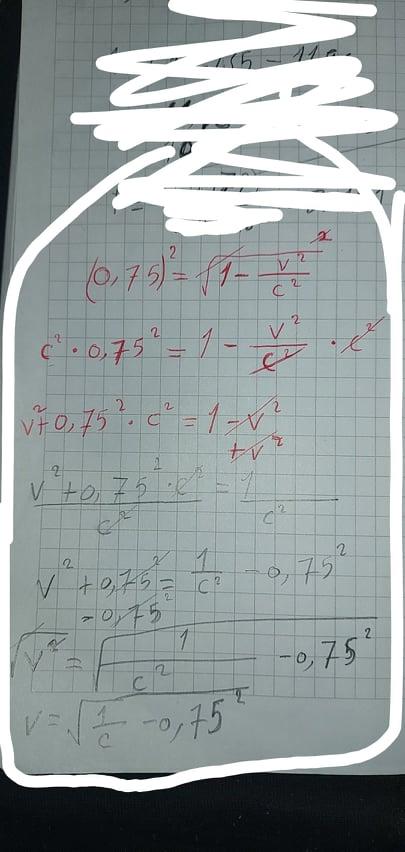 (0,75)² = √1 - v²/c² ²
c² · 0,75² = 1 - v²/c² · c²
v² + 0,75² · c² = 1 - v²
+ v²
v² + 0,75² · c² / c² = 1 / c²
v² + 0,75² = 1/c² - 0,75²
- 0,75²
√v² = √1/c² - 0,75²
v = √1/c - 0,75²